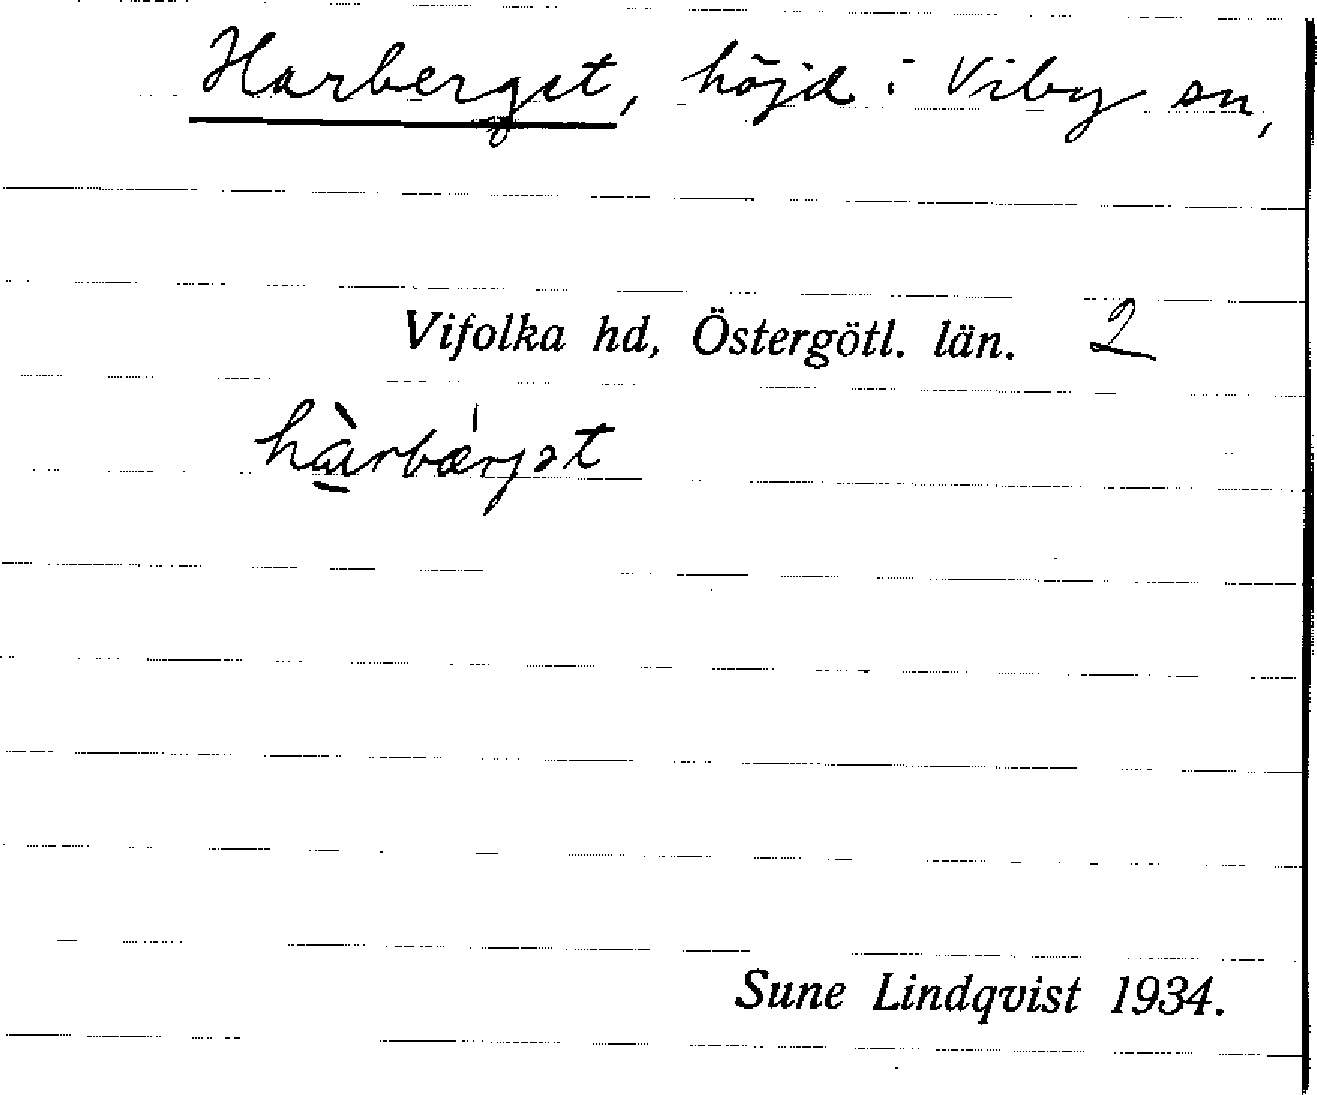 Harberget, höjd i Viby sn,
Vifolka hd, Östergötl. län. 2
hàrbæ̍rjət
Sune Lindqvist 1934.